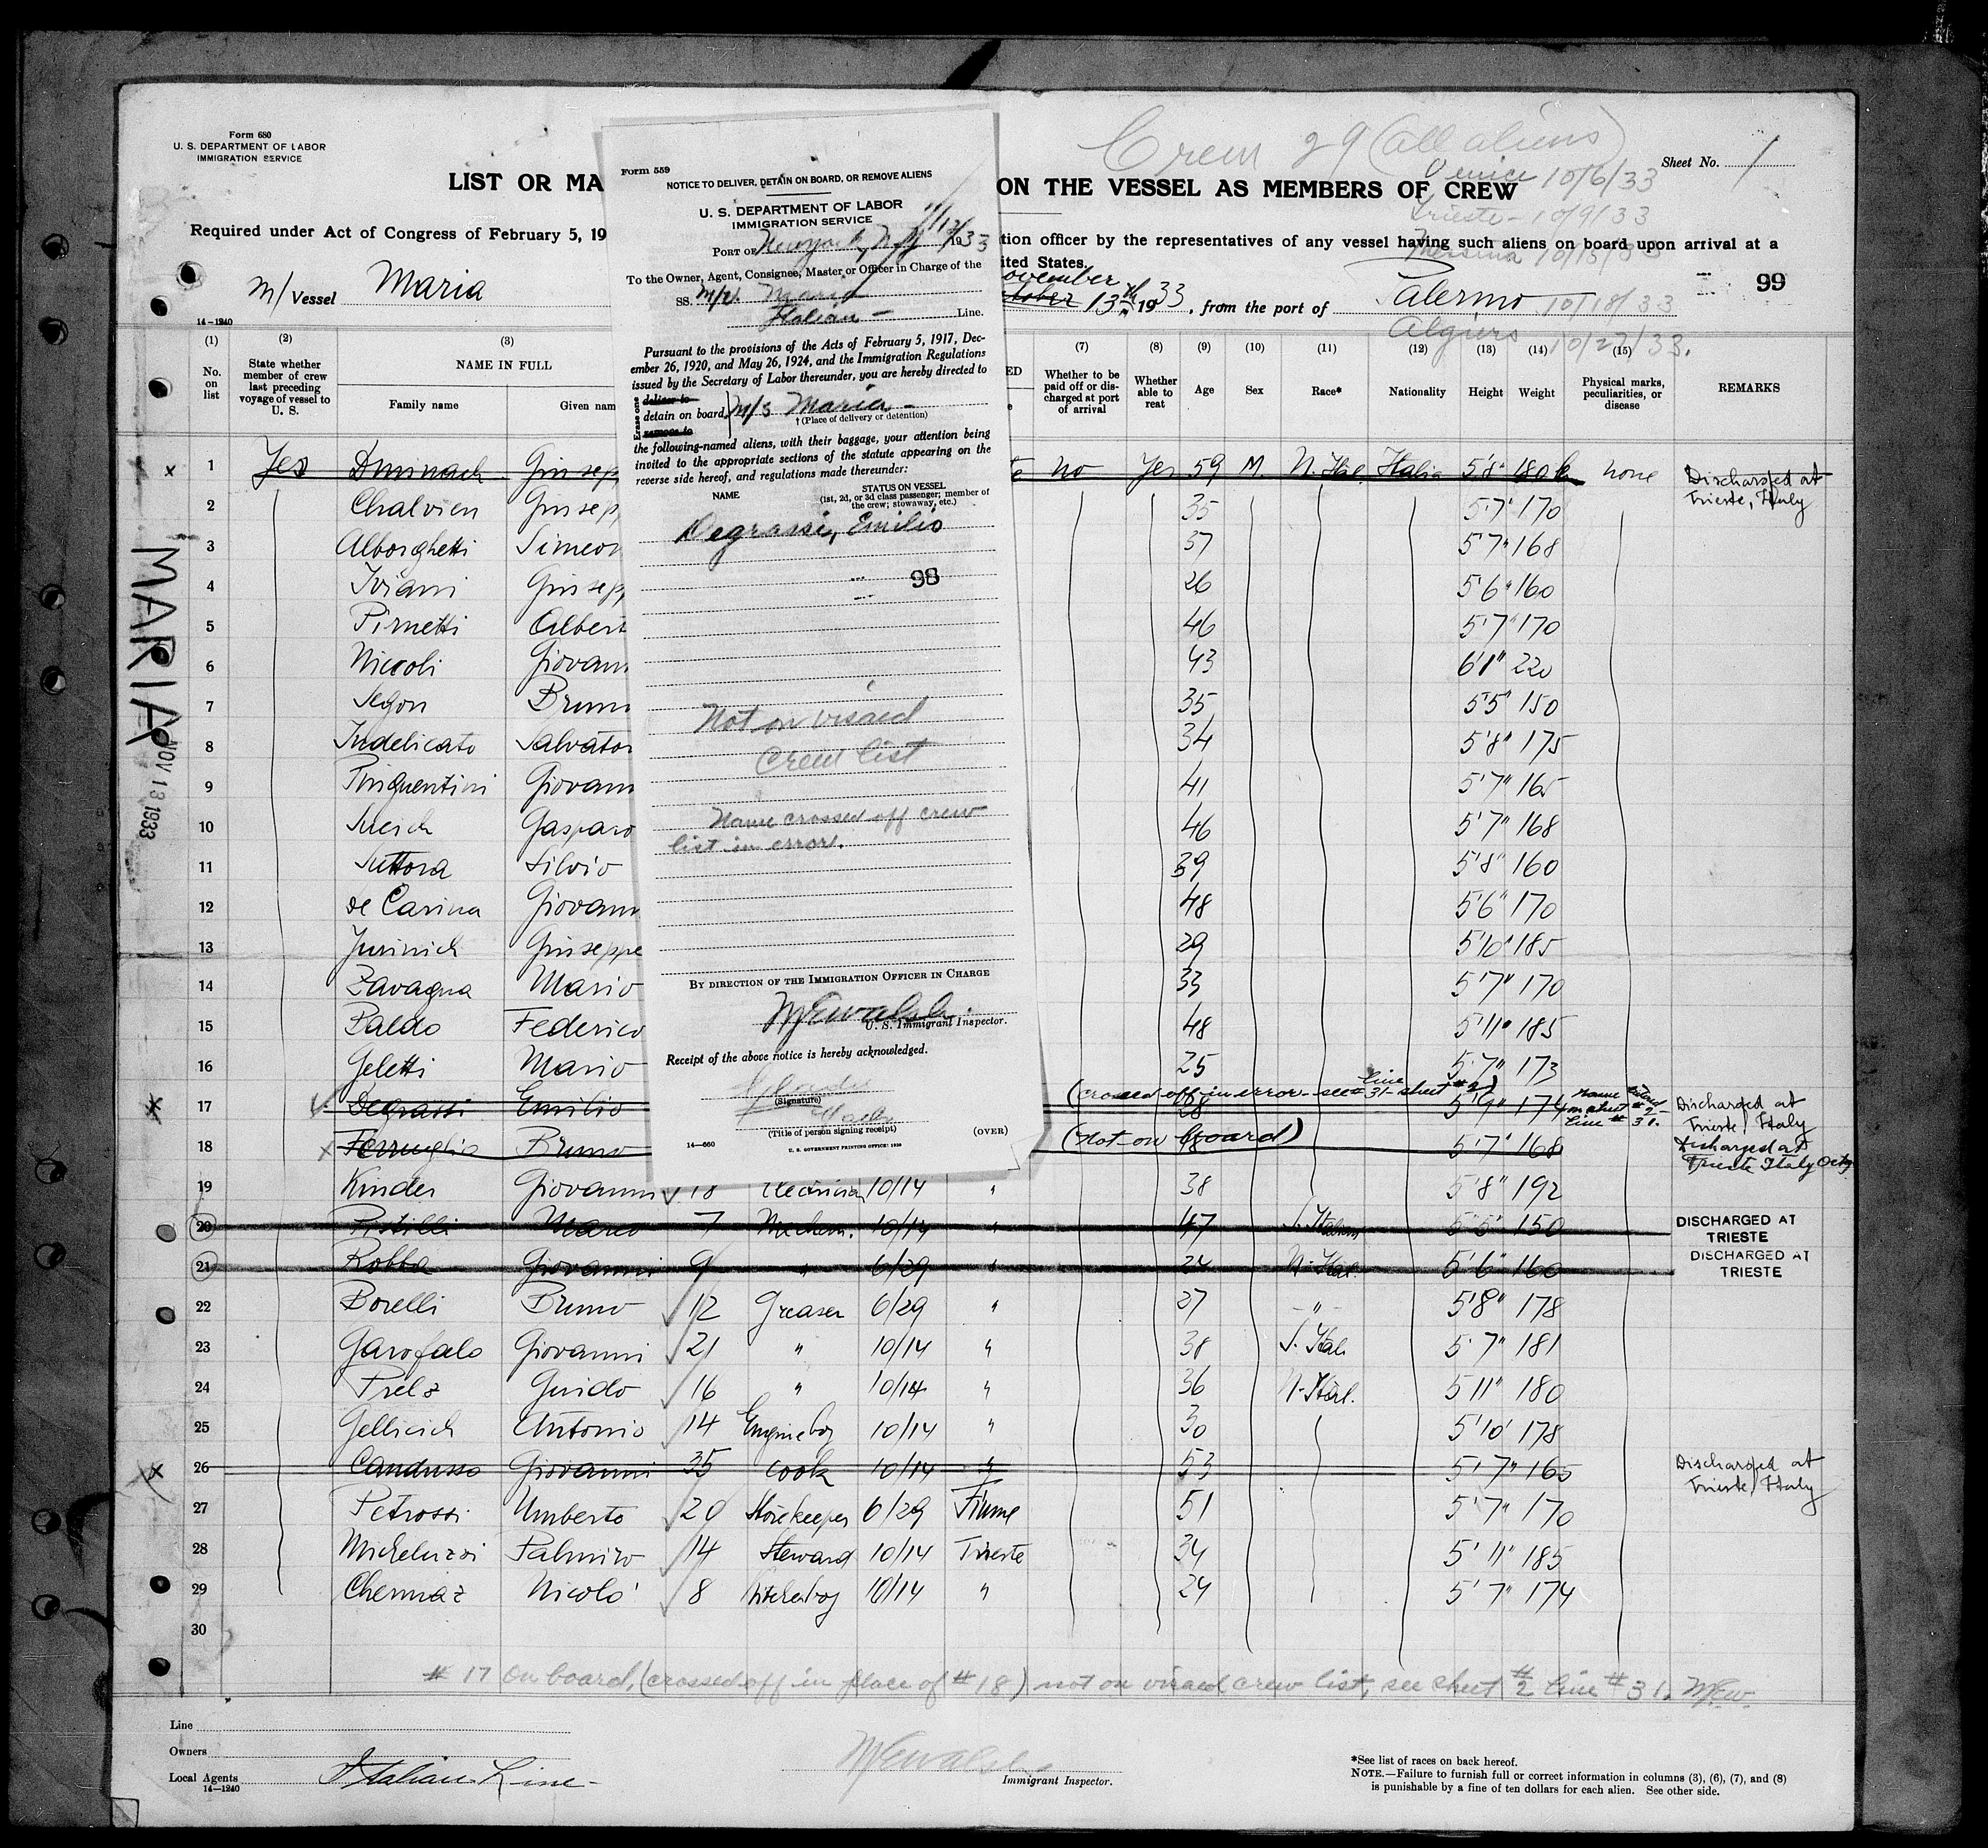 Form 680
U. S. DEPARTMENT OF LABOR
IMMIGRATION SERVICE
Crew 29 (all aliens)
Sheet No. 1
LIST OR MA
ON THE VESSEL AS MEMBERS OF CREW
Venice 10/6/33
Trieste - 10/9/33
Messina 10/15/33
Required under Act of Congress of February 5, 19
tion officer by the representatives of any vessel having such aliens on board upon arrival at a
ited States.
M/ Vessel Maria
ovember
ctober 13th 1933, from the port of Palermo 10/18/33
Algiers 10/27/33.
99
14-1240
(1) (2) (3) (7) (8) (9) (10) (11) (12) (13) (14) (15)
No. on list
State whether member of crew last preceding voyage of vessel to U. S.
NAME IN FULL
Family name
Given nam
Whether to be paid off or discharged at port of arrival
Whether able to reat
Age
Sex
Race*
Nationality
Height
Weight
Physical marks, peculiarities, or disease
REMARKS
Form 559
NOTICE TO DELIVER, DETAIN ON BOARD, OR REMOVE ALIENS
U. S. DEPARTMENT OF LABOR
IMMIGRATION SERVICE
PORT OF New York, N.Y. 11/13/1933
To the Owner, Agent, Consignee, Master or Officer in Charge of the
SS. M/V. Maria
Italian - Line.
Pursuant to the provisions of the Acts of February 5, 1917, Dec-
ember 26, 1920, and May 26, 1924, and the Immigration Regulations
issued by the Secretary of Labor thereunder, you are hereby directed to
Erase one
deliver to
detain on board M/S Maria -
remove to
† (Place of delivery or detention)
the following-named aliens, with their baggage, your attention being
invited to the appropriate sections of the statute appearing on the
reverse side hereof, and regulations made thereunder:
NAME
STATUS ON VESSEL
(1st, 2d, or 3d class passenger; member of
the crew; stowaway, etc.)
Degrassi, Emilio
98
Not on visaed
Crew list
Name crossed off crew
list in error.
BY DIRECTION OF THE IMMIGRATION OFFICER IN CHARGE
U. S. Immigrant Inspector.
Receipt of the above notice is hereby acknowledged.
(Signature)
(Title of person signing receipt)
14-660
(OVER)
U. S. GOVERNMENT PRINTING OFFICE: 1930
MARIA
NOV 13 1933
x 1 Yes Giusep no Yes 59 M. N. Ital. Italia 5'8" 180 none Discharged at Trieste, Italy
2 Chalvien Giusep 35 5'7" 170
3 Alborghetti Simeon 37 5'7" 168
4 Iviani Giusep 26 5'6" 160
5 Pirnetti Albert 46 5'7" 170
6 Niccoli Giovann 43 6'1" 220
7 Segon Bruno 35 5'5" 150
8 Indelicato Salvator 34 5'8" 175
9 Pinguentini Giovann 41 5'7" 165
10 Gasparo 46 5'7" 168
11 Suttora Silvio 39 5'8" 160
12 de Carina Giovann 48 5'6" 170
13 Jurinich Giuseppe 29 5'10" 185
14 Zavagna Mario 33 5'7" 170
15 Baldo Federico 48 5'11" 185
16 Geletti Mario 25 5'7" 173
(crossed off in error - see line # 31 - sheet # 2)
x 17 Degrassi Emilio 28 5'9" 174 name listed on sheet # 2 - line # 31. Discharged at Trieste, Italy
x 18 Ferruglio Bruno (not on board) 5'7" 168 Discharged at Trieste Italy Oct 9
19 Kinder Giovanni 18 Electrician 10/14 " 38 5'8" 192
20 Pistilli Marco 7 Mechan. 10/14 " 47 S. Italian 5'5" 150 DISCHARGED AT TRIESTE
21 Robba Giovanni 9 " 6/29 " 24 N. Ital. 5'6" 160 DISCHARGED AT TRIESTE
22 Borelli Bruno 12 Greaser 6/29 " 27 " 5'8" 178
23 Garofalo Giovanni 21 " 10/14 " 38 S. Ital. 5'7" 181
24 Prelz Guido 16 " 10/14 " 36 N. Ital. 5'11" 180
25 Gellicich Antonio 14 Engine boy 10/14 " 30 5'10" 178
x 26 Candusso Giovanni 35 cook 10/14 " 53 5'7" 165 Discharged at Trieste, Italy
27 Petrossi Umberto 20 Storekeeper 6/29 Fiume 51 5'7" 170
28 Micheluzzi Palmiro 14 Steward 10/14 Trieste 34 5'11" 185
29 Chermaz Nicolo' 8 Kitchenboy 10/14 " 24 5'7" 174
30
# 17 on board, (crossed off in place of # 18) not on visaed crew list, see sheet # 2 line # 31.
Line
Owners
Local Agents Italian Line -
14-1240
Immigrant Inspector.
*See list of races on back hereof.
NOTE.—Failure to furnish full or correct information in columns (3), (6), (7), and (8)
is punishable by a fine of ten dollars for each alien. See other side.